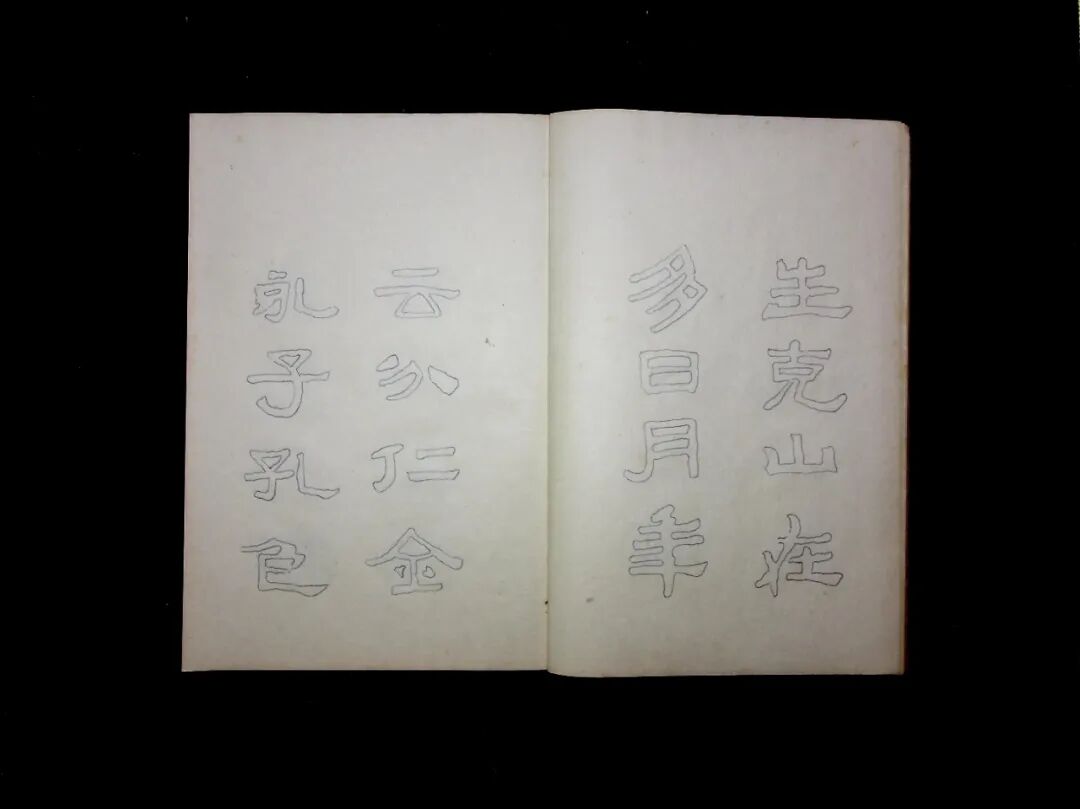 生克山在
多日月年
云公仁金
永子孔色